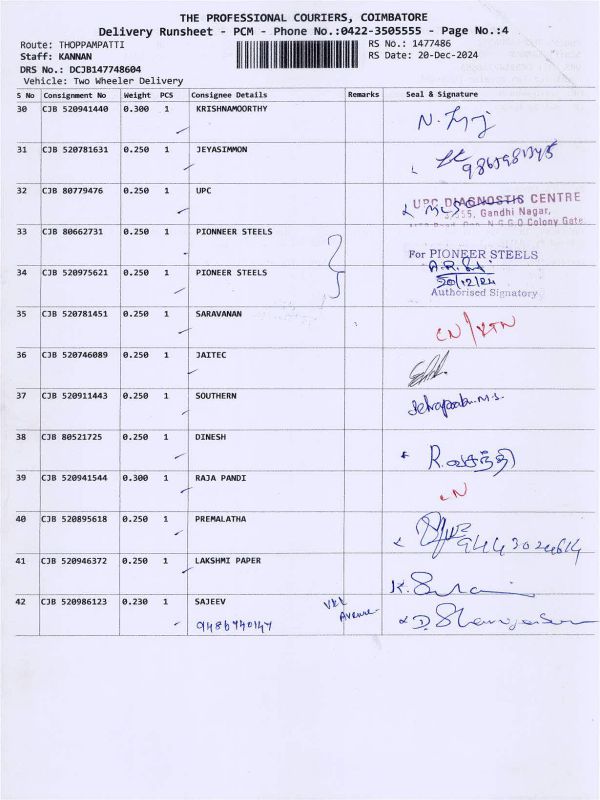 THE PROFESSIONAL COURIERS, COIMBATORE
Delivery Runsheet - PCM - Phone No.:0422-3505555 - Page No.:4
Route: THOPPAMPATTI RS No.: 1477486
Staff: KANNAN RS Date: 20-Dec-2024
DRS No.: DCJB147748604
Vehicle: Two Wheeler Delivery
S No Consignment No Weight PCS Consignee Details Remarks Seal & Signature
30 CJB 520941440 0.300 1 KRISHNAMOORTHY
31 CJB 520781631 0.250 1 JEYASIMMON
32 CJB 80779476 0.250 1 UPC
UPC DIAGNOSTIS CENTRE
Gandhi Nagar,
N.G.G.O Colony Gate.
33 CJB 80662731 0.250 1 PIONNEER STEELS
For PIONEER STEELS
34 CJB 520975621 0.250 1 PIONEER STEELS
20/12/24
Authorised Signatory
35 CJB 520781451 0.250 1 SARAVANAN
36 CJB 520746089 0.250 1 JAITEC
37 CJB 520911443 0.250 1 SOUTHERN
38 CJB 80521725 0.250 1 DINESH
R. வசந்தி
39 CJB 520941544 0.300 1 RAJA PANDI
40 CJB 520895618 0.250 1 PREMALATHA
41 CJB 520946372 0.250 1 LAKSHMI PAPER
42 CJB 520986123 0.230 1 SAJEEV
9486740147 Avenue